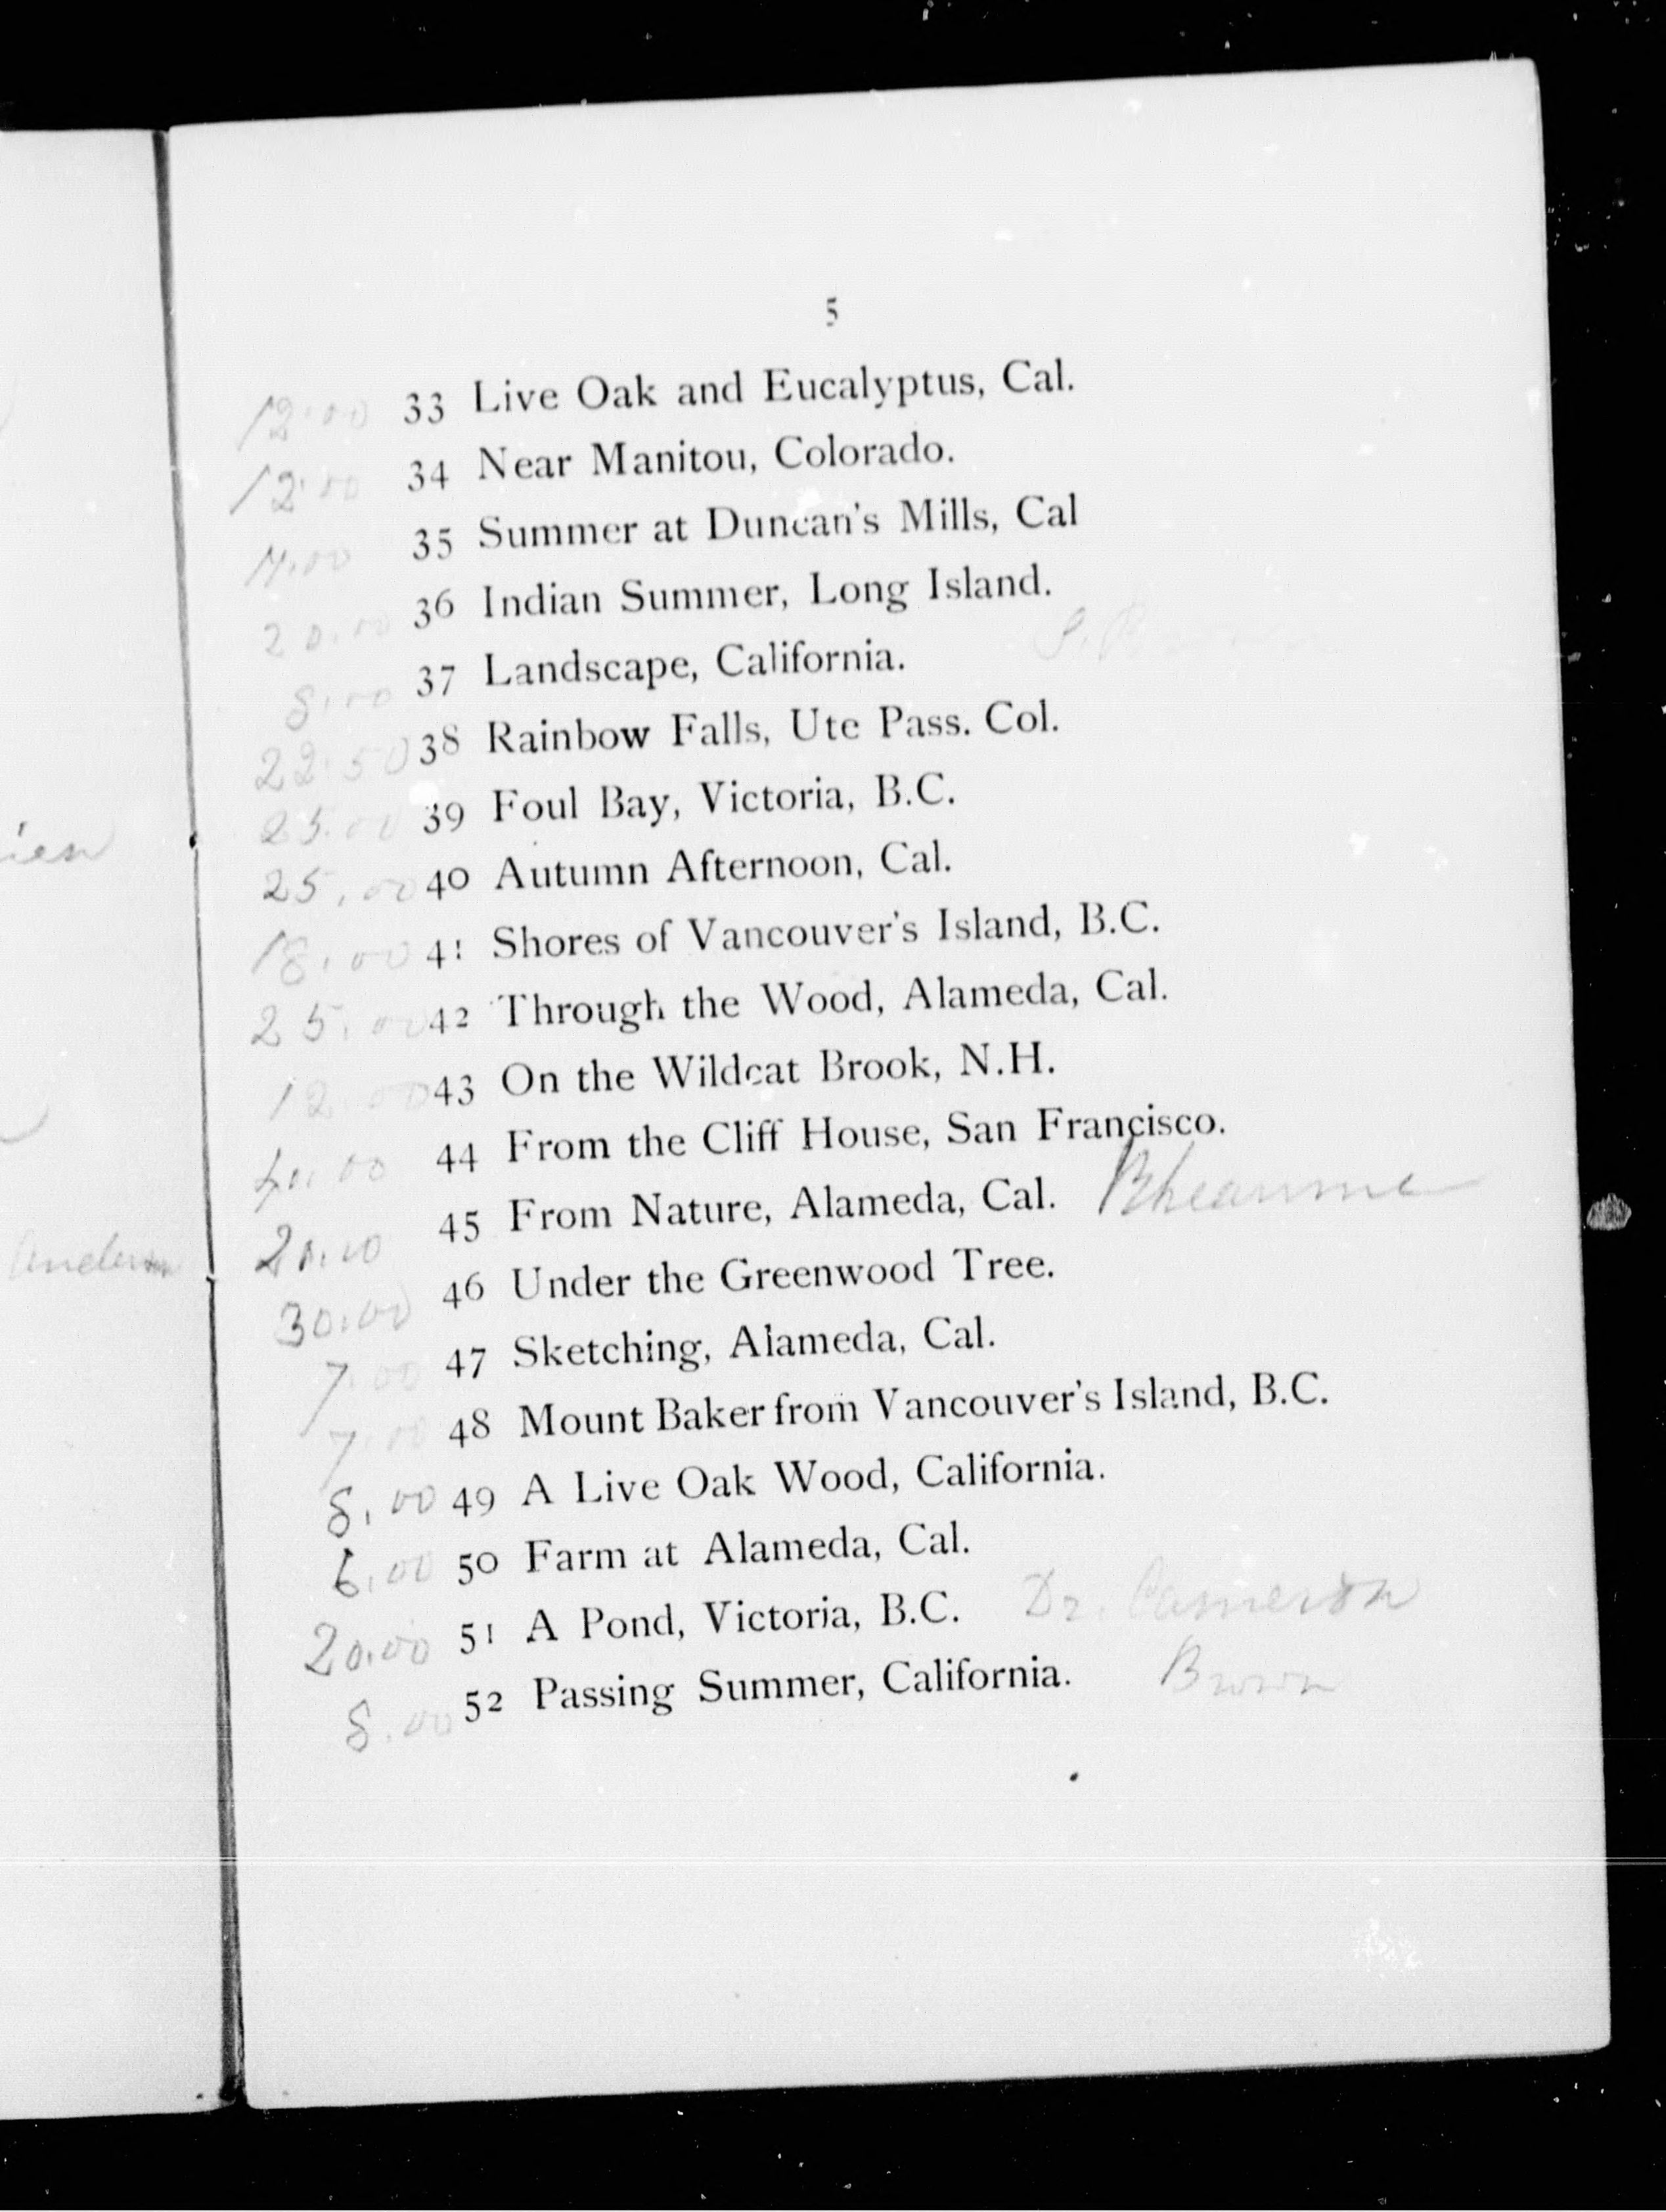 5
12.00 33 Live Oak and Eucalyptus, Cal.
12.00 34 Near Manitou, Colorado.
35 Summer at Duncan's Mills, Cal
20.00 36 Indian Summer, Long Island.
8.00 37 Landscape, California.
22.50 38 Rainbow Falls, Ute Pass. Col.
25.00 39 Foul Bay, Victoria, B.C.
25.00 40 Autumn Afternoon, Cal.
18.00 41 Shores of Vancouver's Island, B.C.
25.00 42 Through the Wood, Alameda, Cal.
12.00 43 On the Wildcat Brook, N.H.
44 From the Cliff House, San Francisco.
20.00 45 From Nature, Alameda, Cal.
30.00 46 Under the Greenwood Tree.
7.00 47 Sketching, Alameda, Cal.
7.00 48 Mount Baker from Vancouver's Island, B.C.
8.00 49 A Live Oak Wood, California.
6.00 50 Farm at Alameda, Cal.
20.00 51 A Pond, Victoria, B.C. Dr. Cameron
8.00 52 Passing Summer, California. Brown